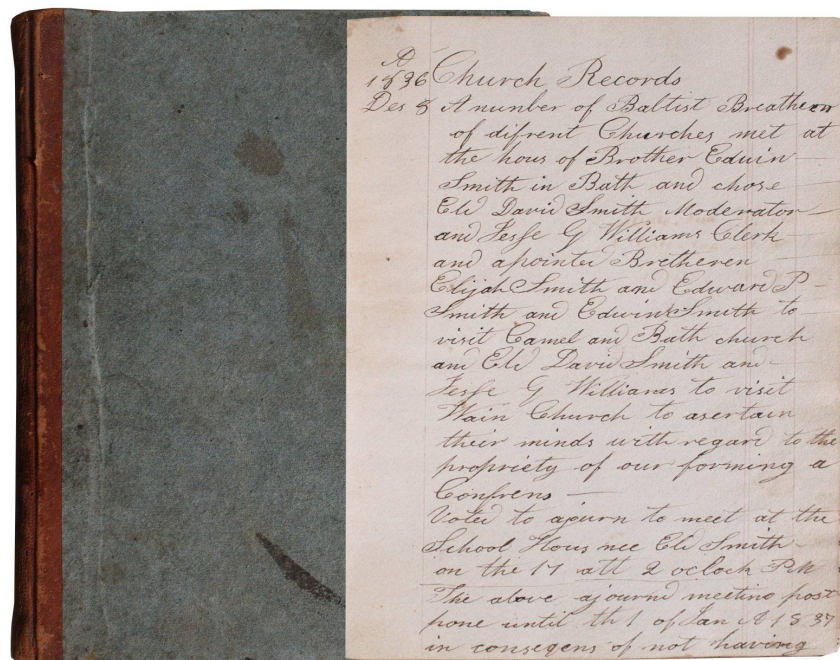 A
1836 Church Records
Des 8 A number of Babtist Breatheren
of difrent Churches met at
the hous of Brother Edwin
Smith in Bath and chose
Eld David Smith Moderator
and Jesse G Williams Clerk
and apointed Bretheren
Elijah Smith and Edward P
Smith and Edwin Smith to
visit Camel and Bath church
and Eld David Smith and
Jesse G Williams to visit
Wain Church to asertain
their minds with regard to the
propriety of our forming a
Confrens
Voted to ajourn to meet at the
School Hous nee Eld Smith
on the 17 att 2 oclock PM
The above ajournd meeting post
pone until th 1 of Jan A 1837
in conseqens of not having